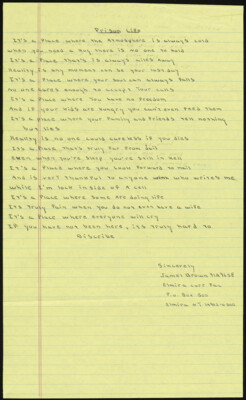 Prison Life
It's a Place where the atmosphere is always cold
when you need a hug there is no one to hold
It's a Place that's always miles away
Reality is any moment can be your last day
It's a Place where your soul can always
no one cares enough to accept your calls
It's a Place where you have no freedom
And if your kids are hungry you can't even feed them
It's a Place where your family and friends tell nothing
but lies
Reality is no one could careless if you dies
It's a Place that's truly far from
even when you're sleep you're still in hell
It's a Place where you look forward to mail
And is very thankful to anyone who writes me
while I'm lock inside of a cell
It's a Place where some are doing life
It's truly Pain when you do not even have a wife
It's a Place where everyone will cry
If you have not been here, its truly hard to
discribe
Sincerely
James Brown
Elmira Corr. Fac
P.O. Box 500
Elmira NY